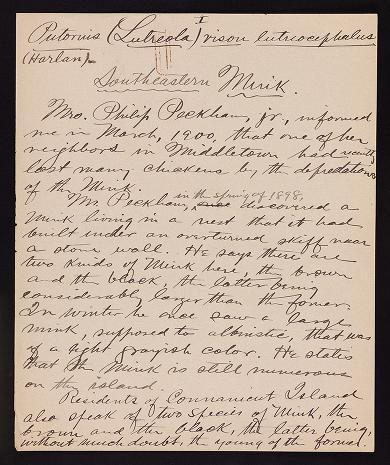 I
Putorius (Lutreola) vison lutreocephalus
(Harlan).
Southeastern Mink.
Mrs. Philip Peckham, jr., informed
me in March, 1900, that one of her
neighbors in Middletown had recently
lost many chickens by the depredations
of the Mink.
Mr. Peckham, in the spring of 1898, discovered a
Mink living in a nest that it had
built under an overturned skiff near
a stone wall. He says there are
two kinds of Mink here, the brown
and the black, the latter being
considerably larger than the former.
In winter he once saw a large
mink, supposed to albinistic, that was
of a light grayish color. He states
that the Mink is still numerous
on the island.
Residents of Connanicut Island
also speak of two species of Mink, the
brown and the black, the latter being,
without much doubt, the young of the former.